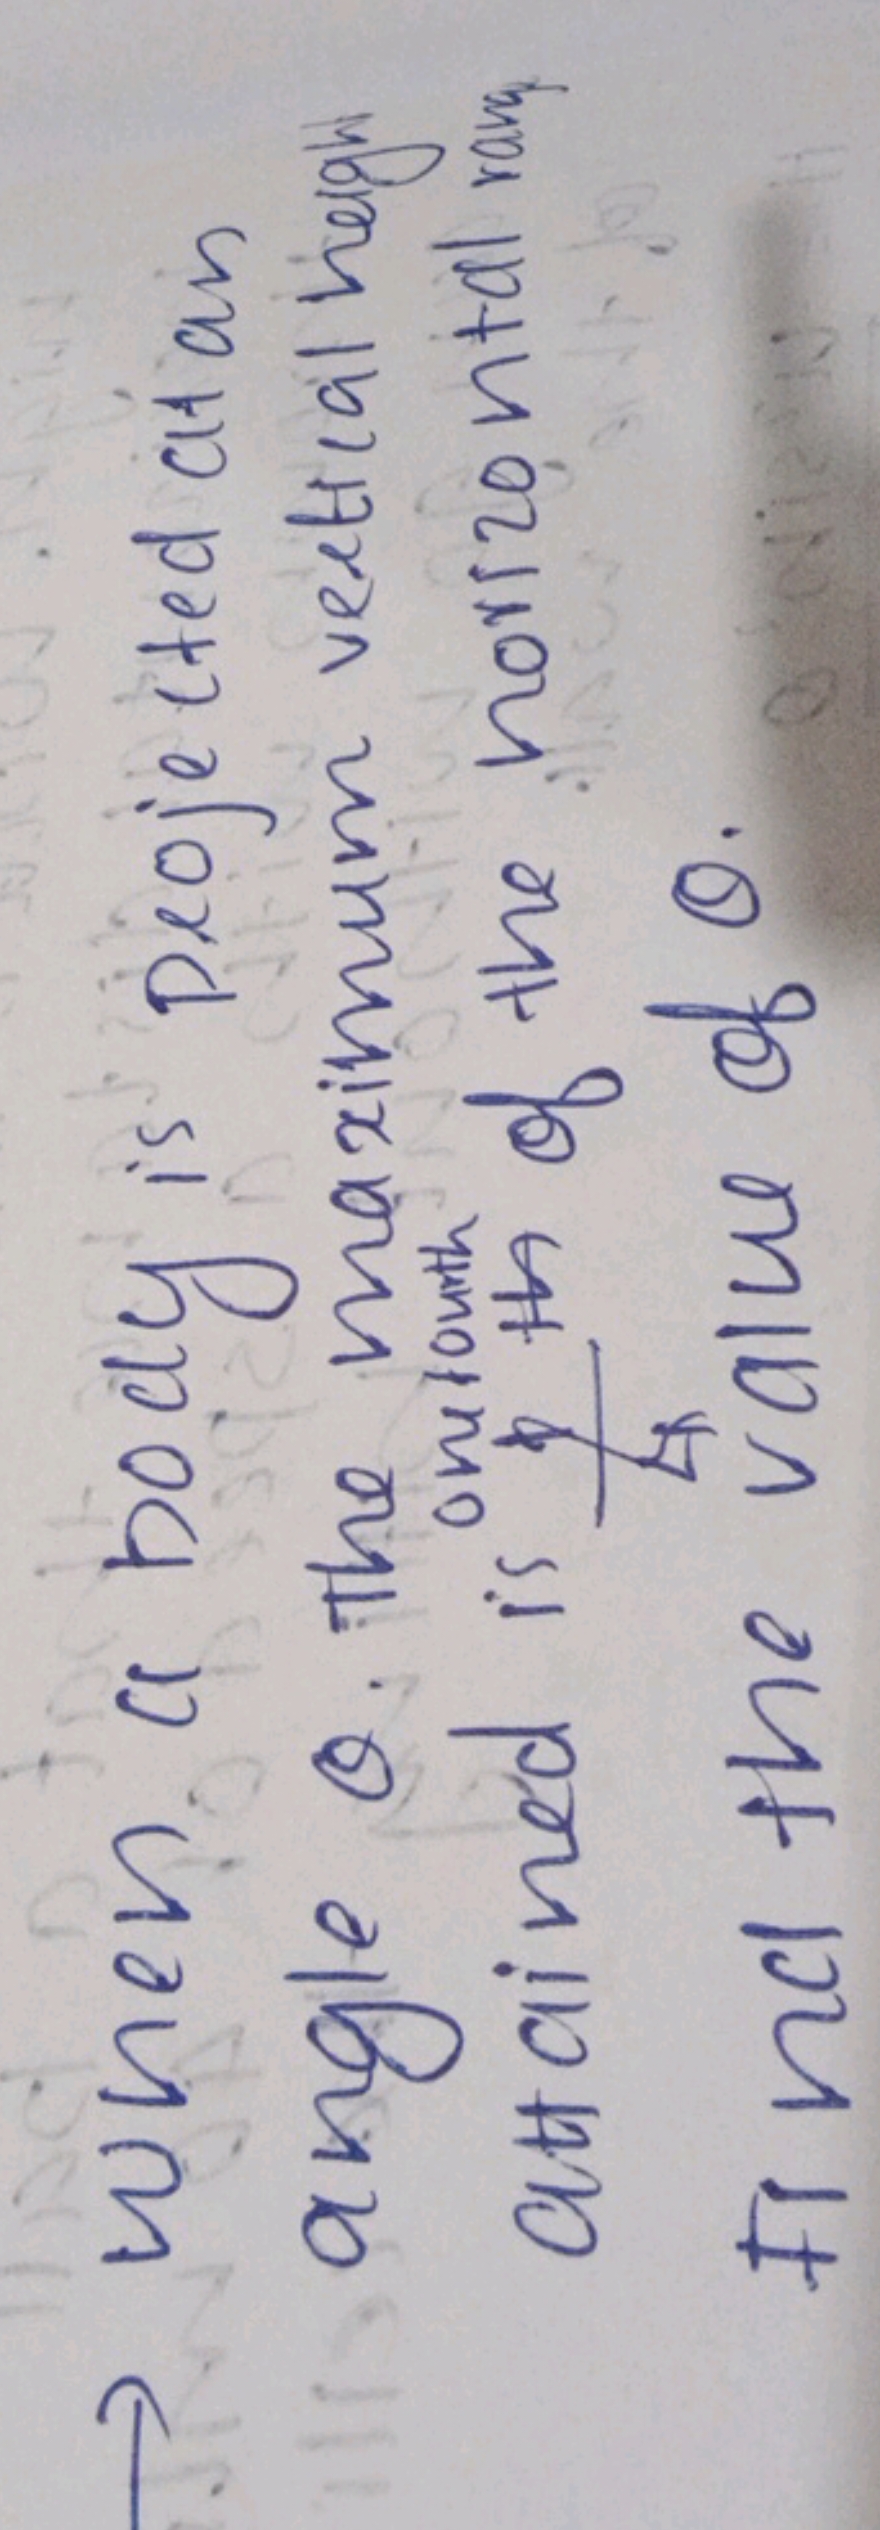 → When a body is projected at an
angle θ. The maximum vertical heigh
onefourth
attained is 1/4 th of the horizontal rang
Find the value of θ.